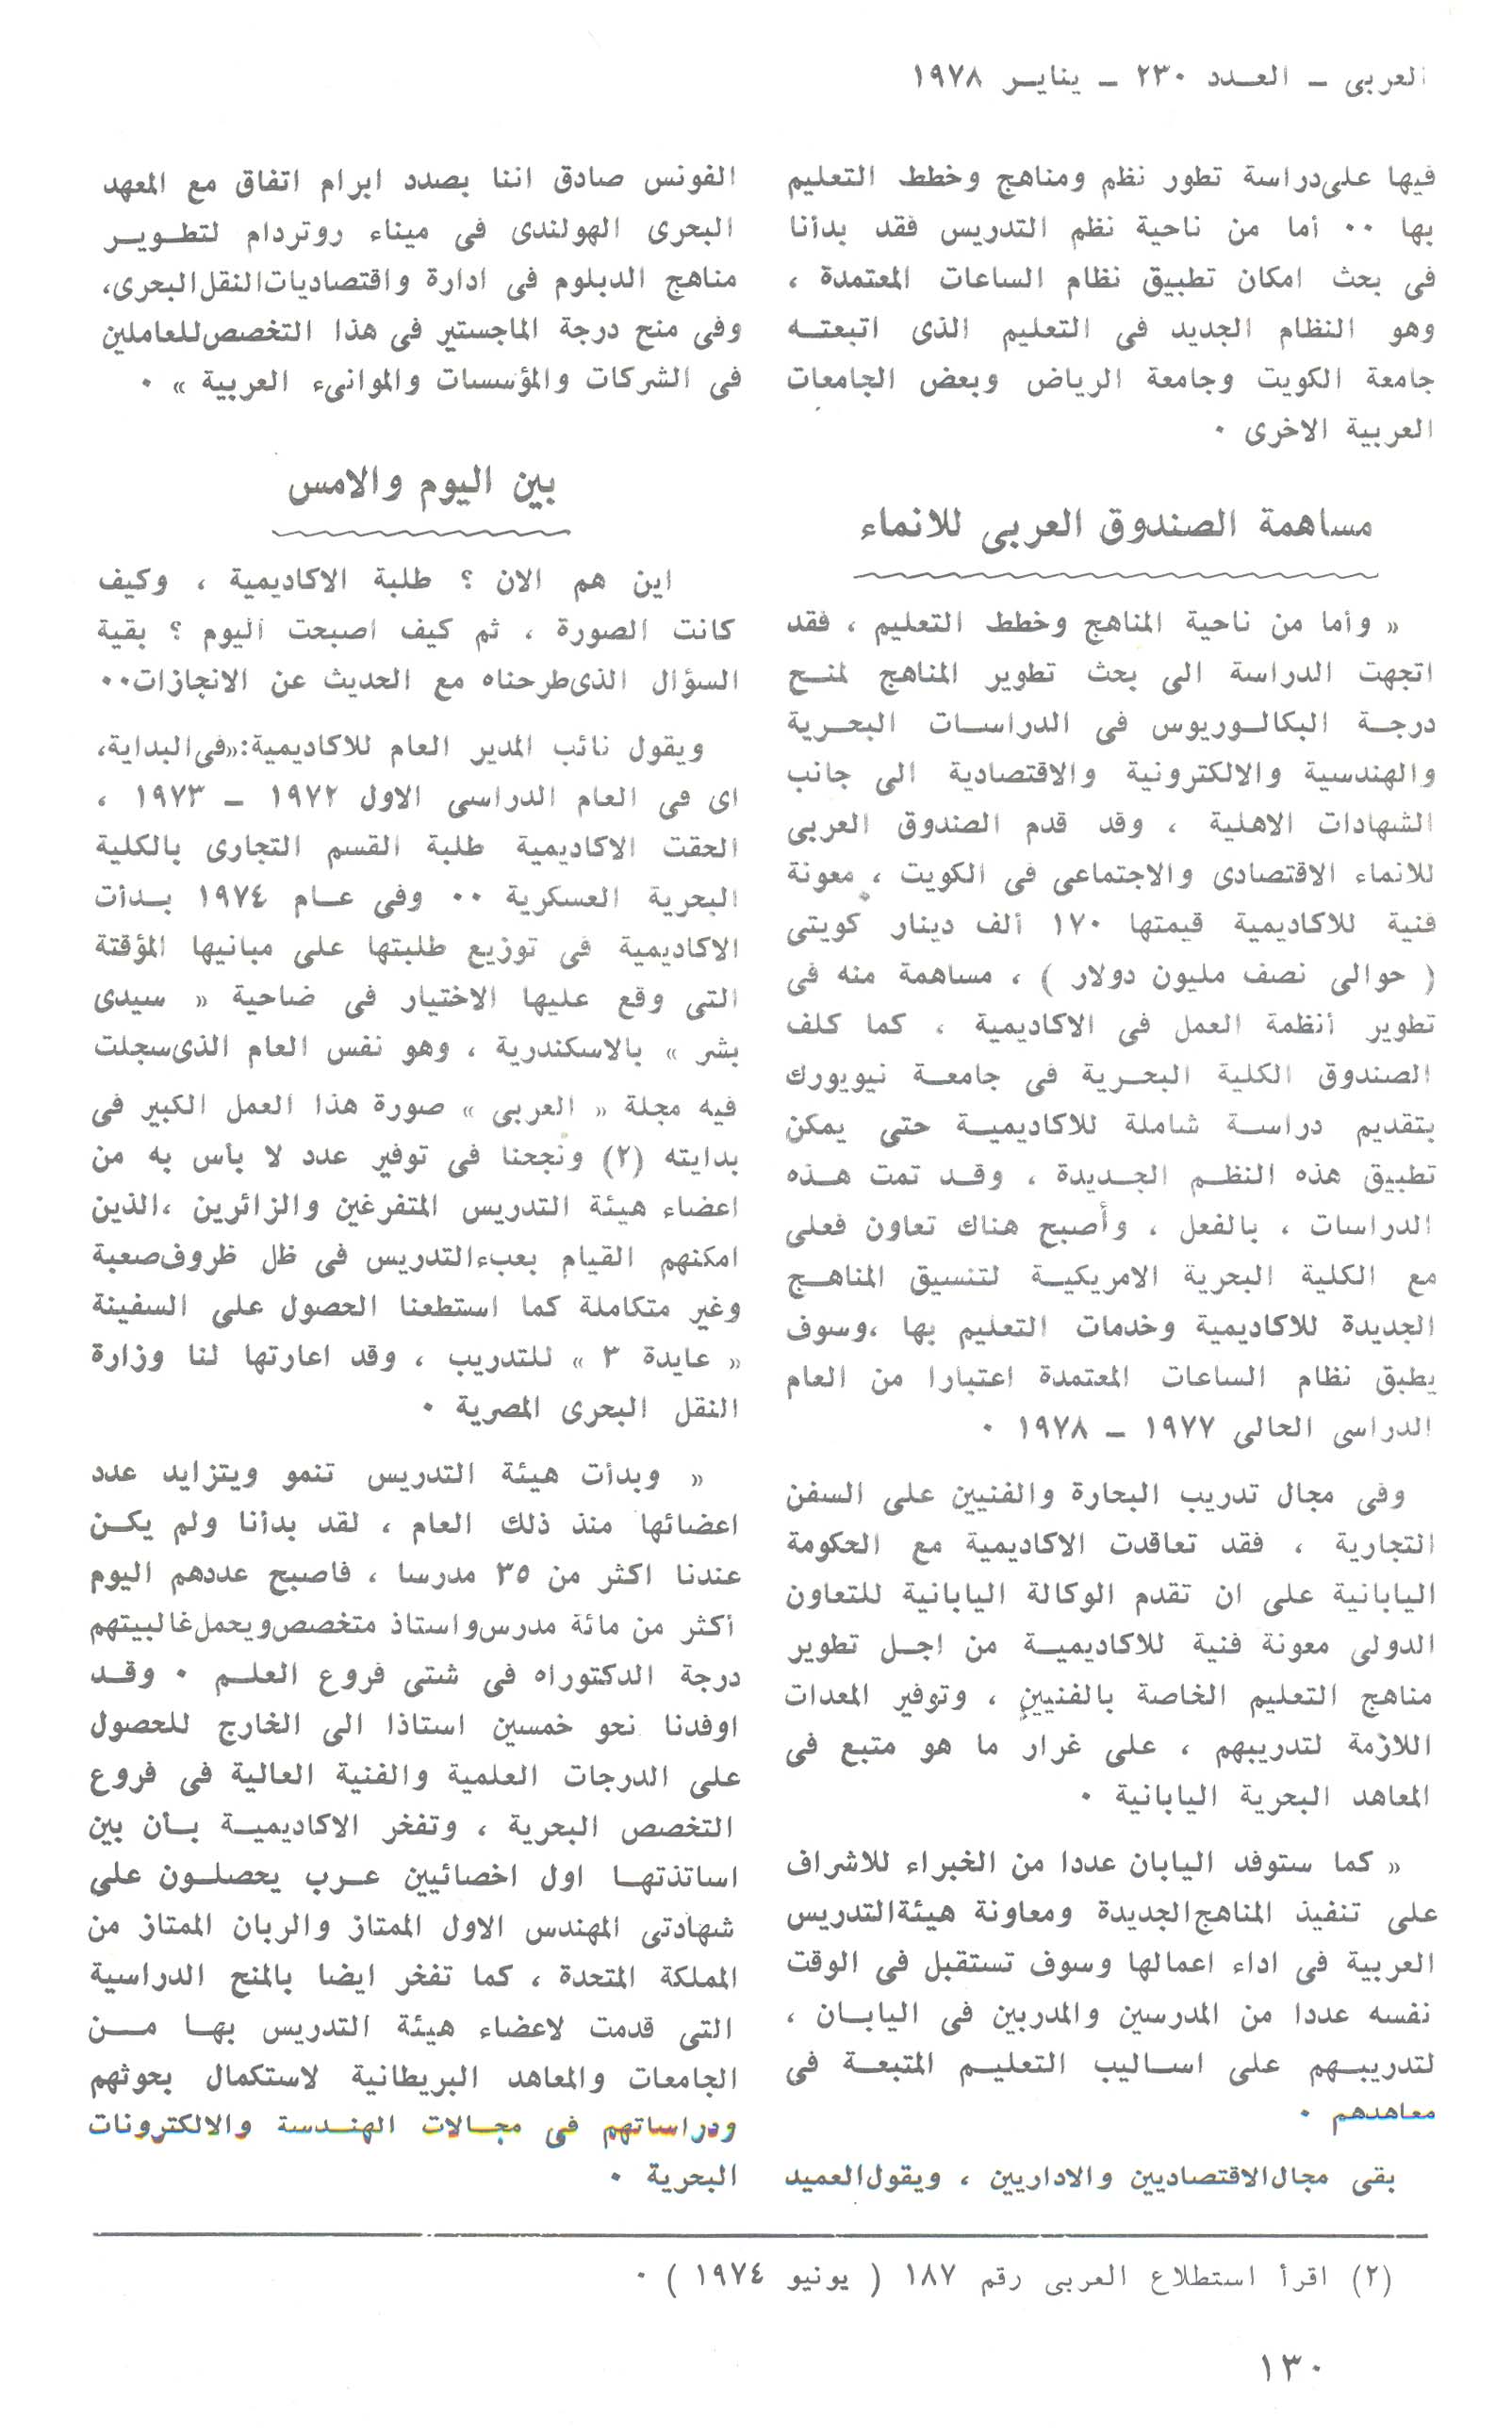 العربى – العـدد ٢٣٠ – ينايـر ١٩٧٨
فيها على دراسة تطور نظم ومناهج وخطط التعليم
بها ٠٠ أما من ناحية نظم التدريس فقد بدأنا
فى بحث امكان تطبيق نظام الساعات المعتمدة ،
وهو النظام الجديد فى التعليم الذى اتبعتـه
جامعة الكويت وجامعة الرياض وبعض الجامعات
العربية الاخرى ٠
مساهمة الصندوق العربى للانماء
« وأما من ناحية المناهج وخطط التعليم ، فقد
اتجهت الدراسة الى بحث تطوير المناهج لمنـح
درجـة البكالـوريوس فى الدراسـات البحـرية
والهندسية والالكترونية والاقتصادية الى جانب
الشهادات الاهلية ، وقد قدم الصندوق العربى
للانماء الاقتصادى والاجتماعى فى الكويت ، معونة
فنية للاكاديمية قيمتها ١٧٠ ألف دينار كويتى
( حوالى نصف مليون دولار ) ، مساهمة منه فى
تطوير أنظمة العمل فى الاكاديمية ، كما كلف
الصندوق الكلية البحـرية فى جامعـة نيويورك
بتقديم دراسـة شاملة للاكاديميـة حتى يمكن
تطبيق هذه النظـم الجـديدة ، وقـد تمت هـذه
الدراسات ، بالفعل ، وأصبح هناك تعاون فعلى
مع الكلية البحرية الامريكيـة لتنسيق المناهـج
الجديدة للاكاديمية وخدمات التعليم بها ،وسوف
يطبق نظام الساعات المعتمدة اعتبارا من العام
الدراسى الحالى ١٩٧٧ – ١٩٧٨ ٠
وفى مجال تدريب البحارة والفنيين على السفن
التجارية ، فقد تعاقدت الاكاديمية مع الحكومة
اليابانية على ان تقدم الوكالة اليابانية للتعاون
الدولى معونة فنية للاكاديميـة من اجـل تطوير
مناهج التعليم الخاصة بالفنيين ، وتوفير المعدات
اللازمة لتدريبهم ، على غرار ما هو متبع فى
المعاهد البحرية اليابانية ٠
« كما ستوفد اليابان عددا من الخبراء للاشراف
على تنفيذ المناهج الجديدة ومعاونة هيئة التدريس
العربية فى اداء اعمالها وسوف تستقبل فى الوقت
نفسه عددا من المدرسين والمدربين فى اليابـان ،
لتدريبـهم على اسـاليب التعليـم المتبعـة فى
معاهدهم ٠
بقى مجال الاقتصاديين والاداريين ، ويقول العميد
الفونس صادق اننا بصدد ابرام اتفاق مع المعهد
البحرى الهولندى فى ميناء روتردام لتطـويـر
مناهج الدبلوم فى ادارة واقتصاديات النقل البحرى،
وفى منح درجة الماجستير فى هذا التخصص للعاملين
فى الشركات والمؤسسات والموانىء العربية » ٠
بين اليوم والامس
اين هم الان ؟ طلبة الاكاديمية ، وكيف
كانت الصورة ، ثم كيف اصبحت اليوم ؟ بقية
السؤال الذى طرحناه مع الحديث عن الانجازات٠٠
ويقول نائب المدير العام للاكاديمية:«فى البداية،
اى فى العام الدراسى الاول ١٩٧٢ – ١٩٧٣ ،
الحقت الاكاديمية طلبة القسم التجارى بالكلية
البحرية العسكرية ٠٠ وفى عـام ١٩٧٤ بـدأت
الاكاديمية فى توزيع طلبتها على مبانيها المؤقتة
التى وقع عليها الاختيار فى ضاحية « سيدى
بشر » بالاسكندرية ، وهو نفس العام الذى سجلت
فيه مجلة « العربى » صورة هذا العمل الكبير فى
بدايته (٢) ونجحنا فى توفير عدد لا بأس به من
اعضاء هيئة التدريس المتفرغين والزائرين ،الذين
امكنهم القيام بعبء التدريس فى ظل ظروف صعبة
وغير متكاملة كما استطعنا الحصول على السفينة
« عايدة ٣ » للتدريب ، وقد اعارتها لنا وزارة
النقل البحرى المصرية ٠
« وبدأت هيئة التدريس تنمو ويتزايد عدد
اعضائها منذ ذلك العام ، لقد بدأنا ولم يكـن
عندنا اكثر من ٣٥ مدرسا ، فاصبح عددهم اليوم
أكثر من مائة مدرس واستاذ متخصص ويحمل غالبيتهم
درجة الدكتوراه فى شتى فروع العلـم ٠ وقـد
اوفدنا نحو خمسين استاذا الى الخارج للحصول
على الدرجات العلمية والفنية العالية فى فروع
التخصص البحرية ، وتفخر الاكاديميـة بـأن بين
اساتذتهـا اول اخصائيين عـرب يحصلـون على
شهادتى المهندس الاول الممتاز والربان الممتاز من
المملكة المتحدة ، كما تفخر ايضا بالمنح الدراسية
التى قدمت لاعضاء هيئة التدريس بهـا مـن
الجامعات والمعاهد البريطانية لاستكمال بحوثهم
ودراساتهم فى مجـالات الهنـدسة والالكترونات
البحرية ٠
(٢) اقرأ استطلاع العربى رقم ١٨٧ ( يونيو ١٩٧٤ ) ٠
١٣٠